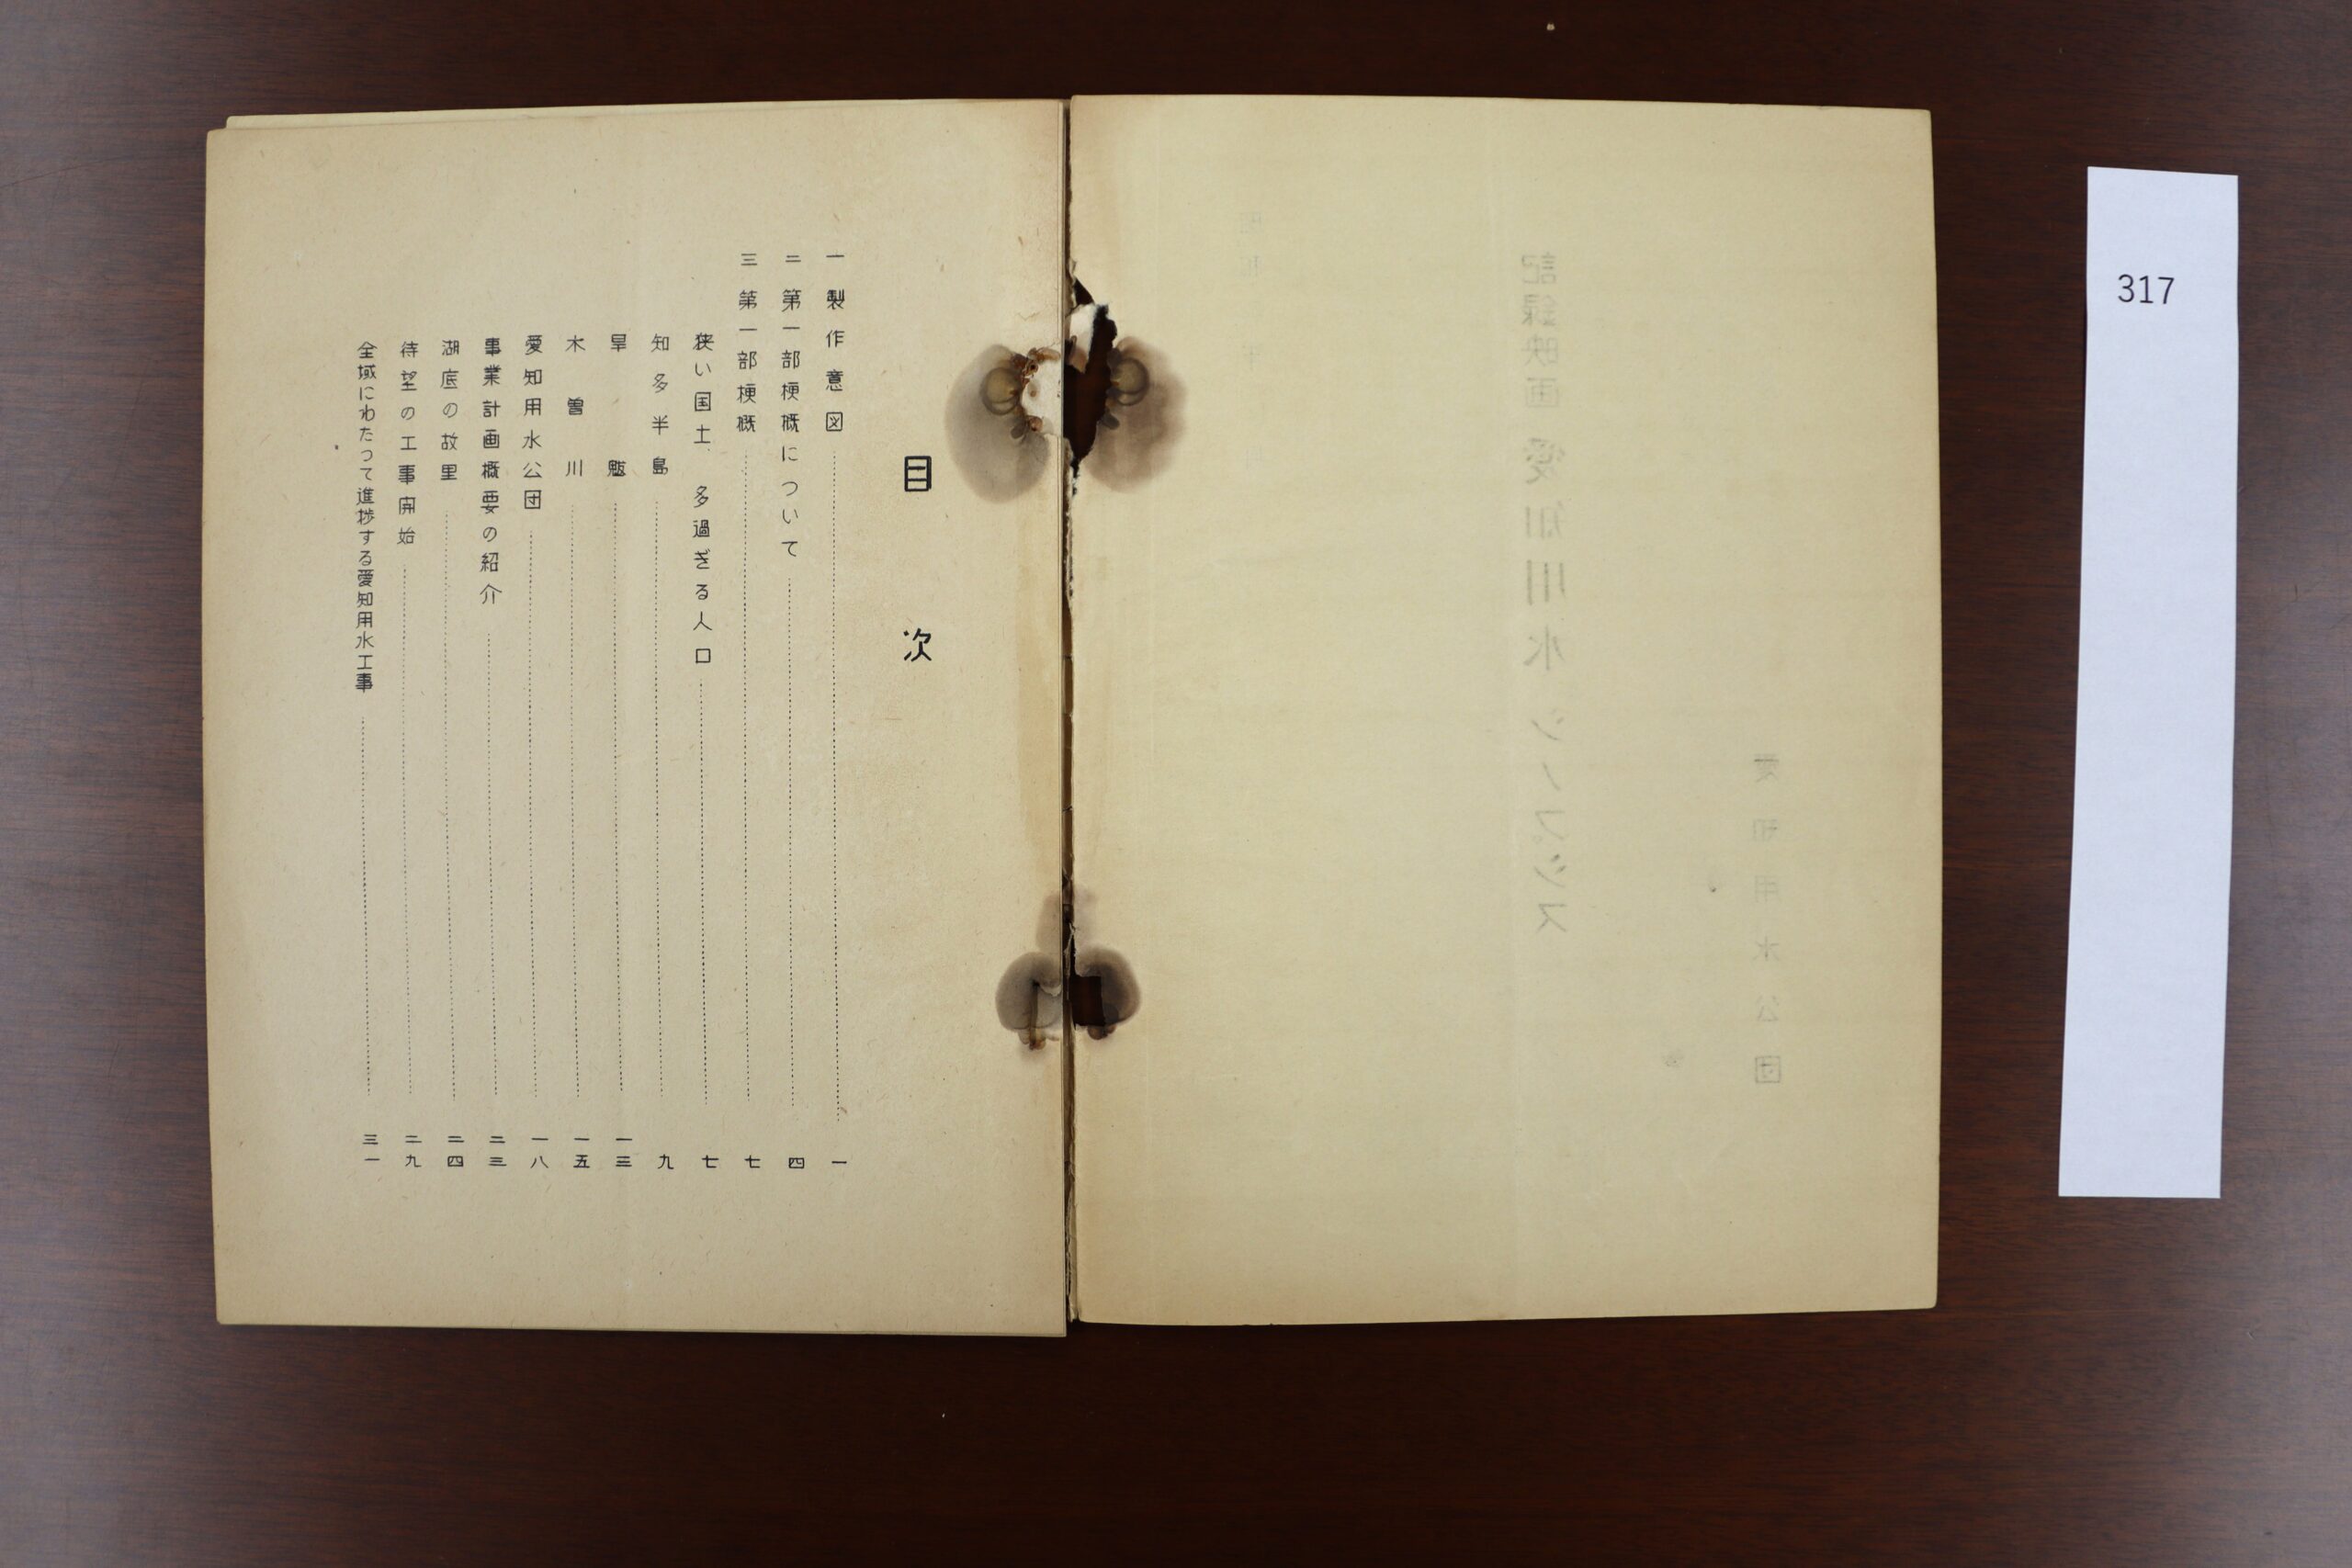 317
目次
一 製作意図 一
二 第一部梗概について 四
三 第一部梗概 七
狭い国土、多過ぎる人口 七
知多半島 九
旱魃 一三
木曽川 一五
愛知用水公団 一八
事業計画概要の紹介 二三
湖底の故里 二四
待望の工事開始 二九
全域にわたって進捗する愛知用水工事 三一
愛知用水公団
記録映画 愛知用水 シノプシス